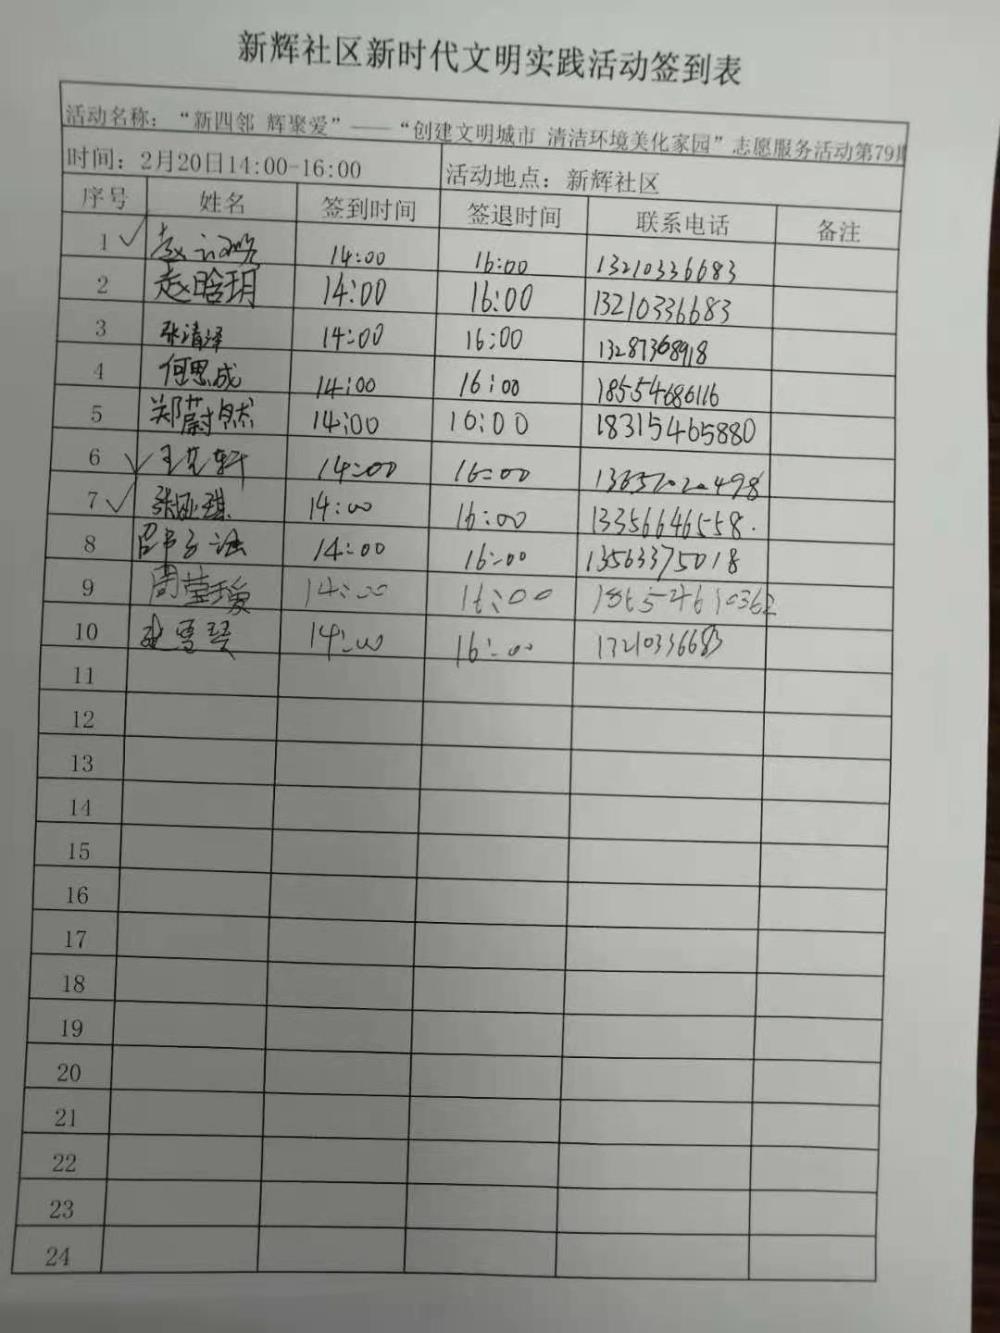 新辉社区新时代文明实践活动签到表
活动名称：“新四邻 辉聚爱”——“创建文明城市 清洁环境美化家园”志愿服务活动第79期
时间：2月20日14:00-16:00 活动地点：新辉社区
序号 姓名 签到时间 签退时间 联系电话 备注
1 赵 14:00 16:00 13210336683
2 赵晗玥 14:00 16:00 13210336683
3 张清泽 14:00 16:00 13287368918
4 何思成 14:00 16:00 18554686116
5 郑蔚然 14:00 16:00 18315465880
6 王艺轩 14:00 16:00
7 张亚琪 14:00 16:00 13356646558.
8 14:00 16:00 13563375018
9 周莹瑷 14:00 16:00
10 14:00 16:00 13210336683
11
12
13
14
15
16
17
18
19
20
21
22
23
24